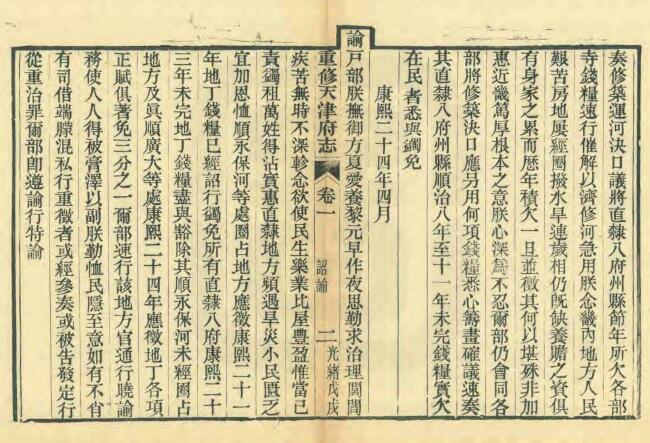 奏修築運河決口議將直隸八府州縣節年所欠各部
寺錢糧速行催解以濟修河急用朕念畿內地方人民
艱苦房地屢經圈撥水旱連歲相仍既缺養贍之資俱
有身家之累而歷年積欠一旦並徵其何以堪殊非加
惠近畿篤厚根本之意朕心深為不忍爾部仍會同各
部將修築決口應另用何項錢糧悉心籌畫確議速奏
其直隸八府州縣順治八年至十一年未完錢糧實欠
在民者悉與蠲免
康熙二十四年四月
諭戶部朕撫御方夏愛養黎元早作夜思勤求治理閭閻
重修天津府志
卷一
詔諭
二
光緒戊戌
疾苦無時不深軫念欲使民生樂業比屋豐盈惟當己
責蠲租萬姓得沾實惠直隸地方頻遇旱災小民匱乏
宜加恩恤順永保河等處圈占地方應徵康熙二十一
年地丁錢糧已經詔行蠲免所有直隸八府康熙二十
三年未完地丁錢糧盡與豁除其順永保河未經圈占
地方及真順廣大等處康熙二十四年應徵地丁各項
正賦俱著免三分之一爾部速行該地方官通行曉諭
務使人人得被膏澤以副朕勤恤民隱至意如有不肖
有司借端朦混私行重徵者或經參奏或被告發定行
從重治罪爾部即遵諭行特諭